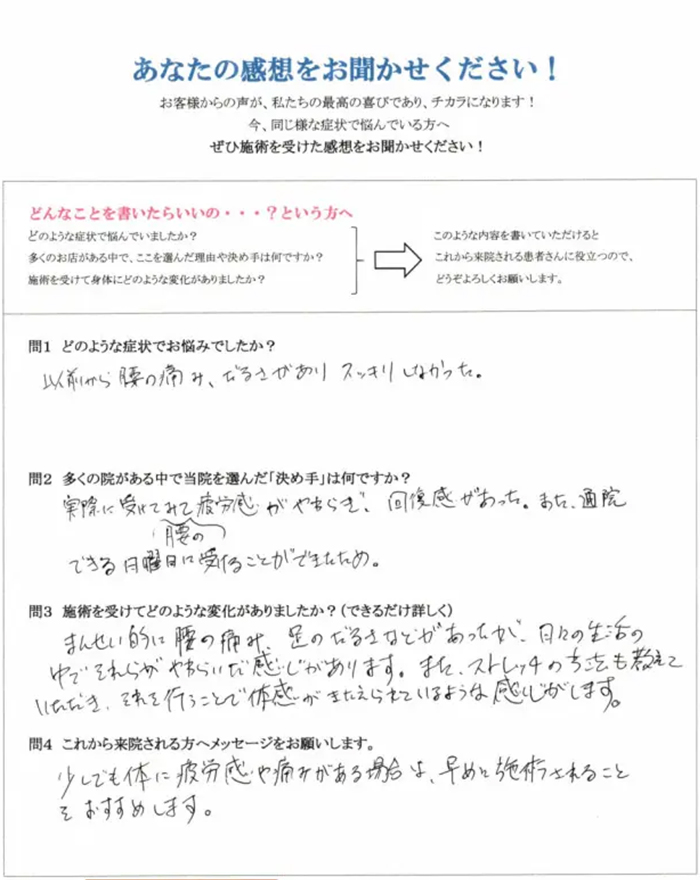 あなたの感想をお聞かせください！
お客様からの声が、私たちの最高の喜びであり、チカラになります！
今、同じ様な症状で悩んでいる方へ
ぜひ施術を受けた感想をお聞かせください！
どんなことを書いたらいいの・・・？という方へ
どのような症状で悩んでいましたか？
多くのお店がある中で、ここを選んだ理由や決め手は何ですか？
施術を受けて身体にどのような変化がありましたか？
このような内容を書いていただけると
これから来院される患者さんに役立つので、
どうぞよろしくお願いします。
問1 どのような症状でお悩みでしたか？
以前から腰の痛み、だるさがありスッキリしなかった。
問2 多くの院がある中で当院を選んだ「決め手」は何ですか？
実際に受けてみて疲労感がやわらぎ、回復感があった。また、通院
腰の
できる日曜日に受けることができたため。
問3 施術を受けてどのような変化がありましたか？（できるだけ詳しく）
まんせい的に腰の痛み、足のだるさなどがあったが、日々の生活の
中でそれらがやわらいだ感じがあります。また、ストレッチの方法も教えて
いただき、それを行うことで体感がきたえられているような感じがします。
問4 これから来院される方へメッセージをお願いします。
少しでも体に疲労感や痛みがある場合は、早めに施術されること
をおすすめします。